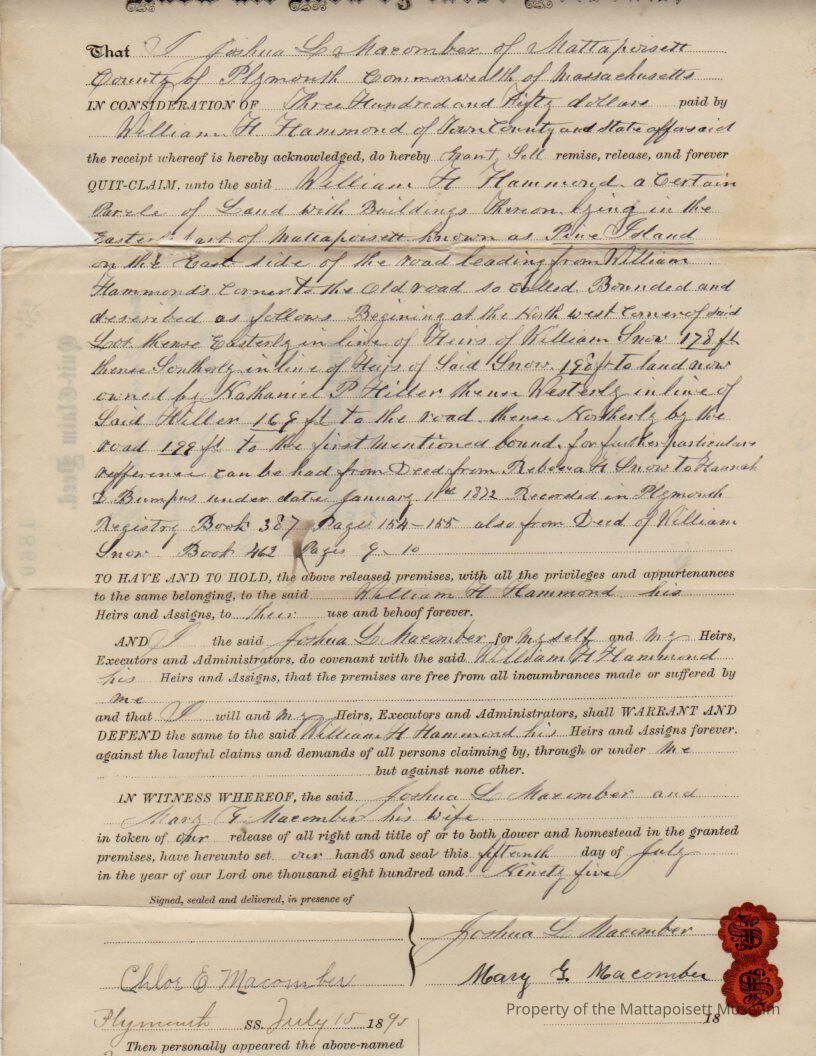 Know all Men by these Presents,
That I Joshua L Macomber of Mattapoisett
County of Plymouth Commonwealth of Massachusetts
IN CONSIDERATION OF Three Hundred and Fifty dollars paid by
William H Hammond of Town County and State afforsaid
the receipt whereof is hereby acknowledged, do hereby Grant, Sell remise, release, and forever
QUIT-CLAIM, unto the said William H Hammond a Certain
Parcle of Land with Buildings thereon lying in the
Easterly Part of Mattapoisett known as Pine Island
on the East side of the road leading from William
Hammond's Corner to the Old road so called. Bounded and
described as follows Begining at the North west Corner of said
Lot thense Easterly in line of Heirs of William Snow 178 ft
thense Southerly in line of Heirs of Said Snow. 198 ft to land now
owned by Nathaniel P Hiller thense Westerly in line of
Said Hiller 169 ft to the road thense Northerly by the
road 199 ft to the first mentioned bound. for further particulars
refference can be had from Deed from Rebecca H Snow to Hannah
Bumpus under date January 11th 1872 Recorded in Plymouth
Registry Book 387 Pages 154-155 also from Deed of William
Snow Book 462 Pages 9-10
TO HAVE AND TO HOLD, the above released premises, with all the privileges and appurtenances
to the same belonging, to the said William H Hammond his
Heirs and Assigns, to their use and behoof forever.
AND I the said Joshua L Macomber for myself and my Heirs,
Executors and Administrators, do covenant with the said William H Hammond
his Heirs and Assigns, that the premises are free from all incumbrances made or suffered by
me
and that I will and my Heirs, Executors and Administrators, shall WARRANT AND
DEFEND the same to the said William H Hammond his Heirs and Assigns forever.
against the lawful claims and demands of all persons claiming by, through or under me
but against none other.
IN WITNESS WHEREOF, the said Joshua L Macomber and
Mary G Macomber his wife
in token of our release of all right and title of or to both dower and homestead in the granted
premises, have hereunto set our hands and seal this fifteenth day of July
in the year of our Lord one thousand eight hundred and Ninety five
Signed, sealed and delivered, in presence of
Joshua L Macomber
Chloe E Macomber
Mary G Macomber
Plymouth SS. July 15 1895
18
Then personally appeared the above-named
Quit-Claim Deed.
Property of the Mattapoisett Museum